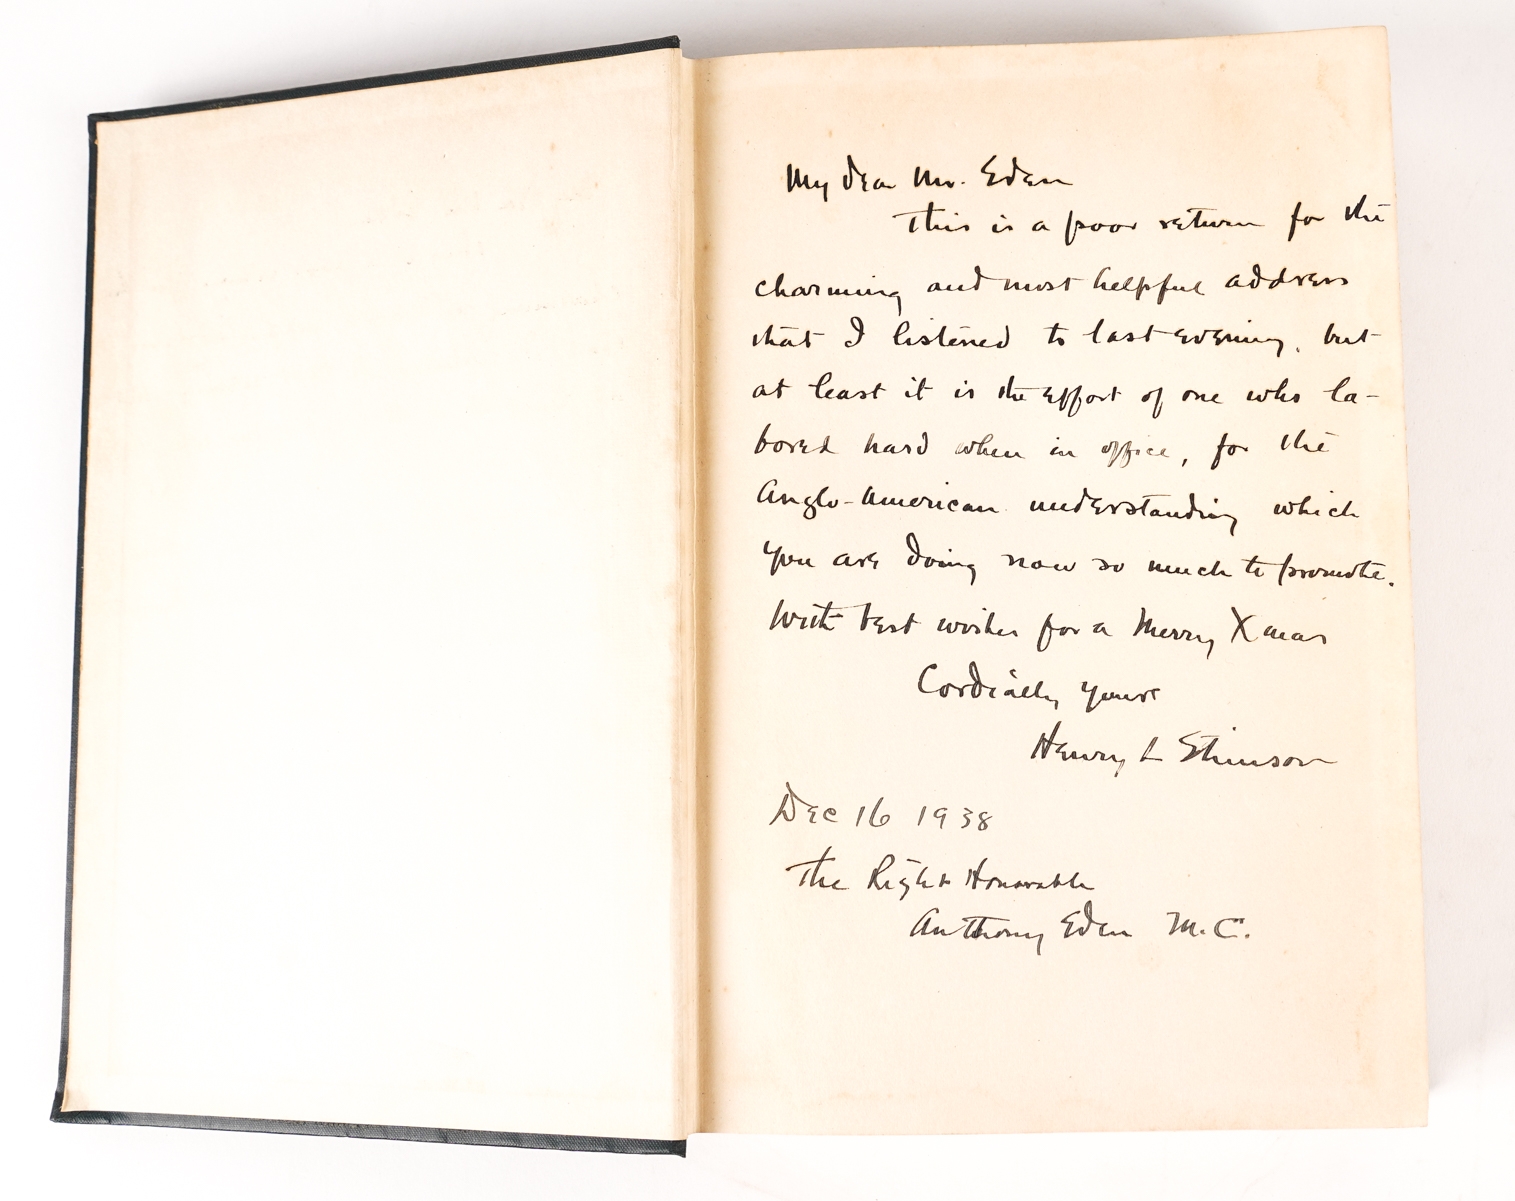 My dear Mr. Eden
This is a poor return for the
charming and most helpful address
that I listened to last evening, but
at least it is the effort of one who la-
bored hard when in office, for the
Anglo-American understanding which
you are doing now so much to promote.
With best wishes for a Merry Xmas
Cordially yours
Henry L Stimson
Dec 16 1938
The Right Honorable
Anthony Eden M.C.